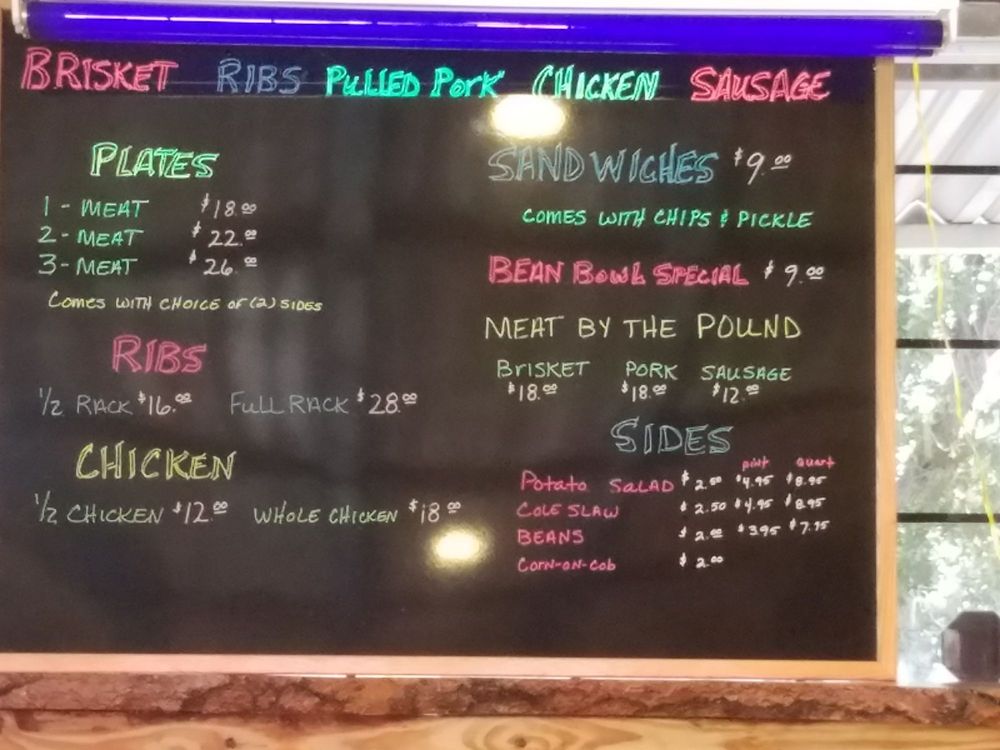 BRISKET RIBS PULLED PORK CHICKEN SAUSAGE
PLATES
1 - MEAT $18.00
2 - MEAT $22.00
3 - MEAT $26.00
COMES WITH CHOICE OF (2) SIDES
RIBS
1/2 RACK $16.00 FULL RACK $28.00
CHICKEN
1/2 CHICKEN $12.00 WHOLE CHICKEN $18.00
SANDWICHES $9.00
COMES WITH CHIPS & PICKLE
BEAN BOWL SPECIAL $9.00
MEAT BY THE POUND
BRISKET PORK SAUSAGE
$18.00 $18.00 $12.00
SIDES
pint Quart
Potato SALAD $2.50 $4.95 $8.95
COLE SLAW $2.50 $4.95 $8.95
BEANS $2.00 $3.95 $7.75
Corn-on-Cob $2.00